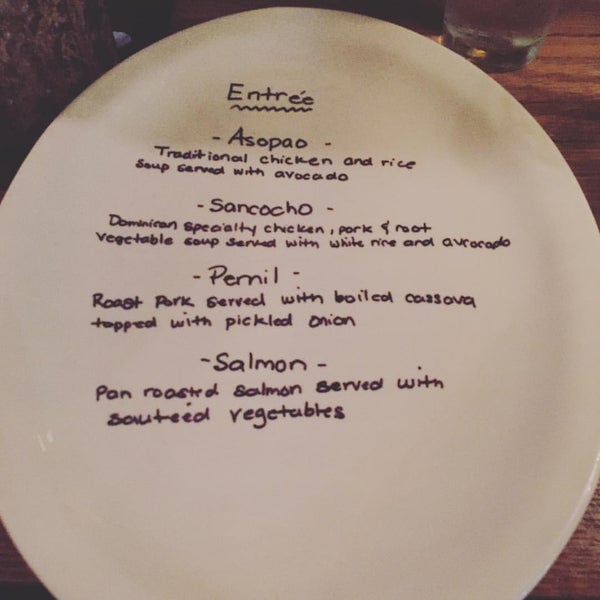 Entrée
- Asopao -
Traditional chicken and rice
soup served with avocado
- Sancocho -
Dominican specialty chicken, pork & root
vegetable soup served with white rice and avrocado
- Pernil -
Roast Pork served with boiled cassava
topped with pickled onion
- Salmon -
Pan roasted salmon served with
sauteéd vegetables